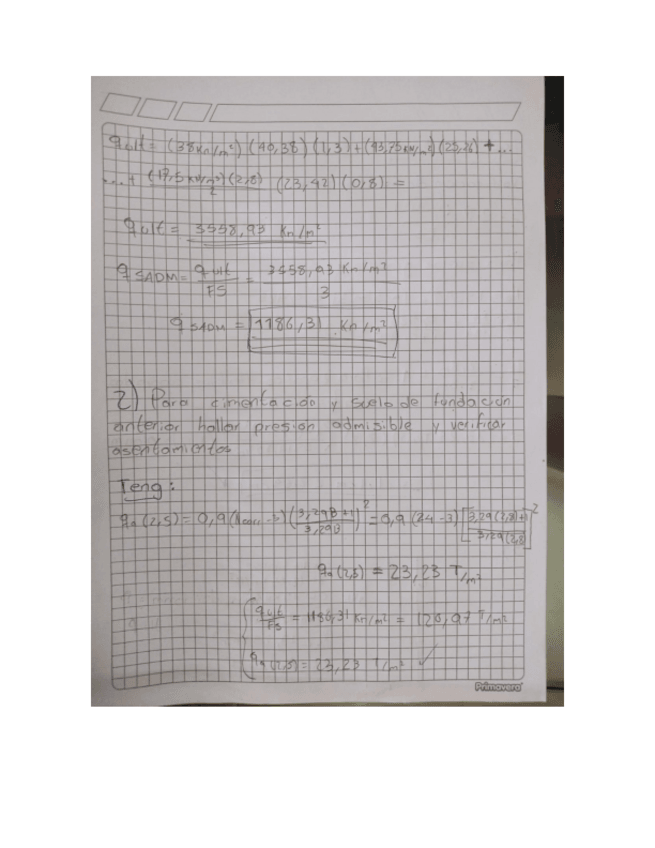 qult = (38 Kn/m²) (40,38) (1,3) + (93,75 KN/m²) (25,26) + ...
...+ (17,5 KN/m³)(2,8)/2 (23,42) (0,8) =
qult = 3558,93 Kn/m²
qSADM = qult/FS = 3558,93 Kn/m²/3
qSADM = 1186,31 Kn/m²
2) Para cimentación y suelo de fundación
anterior hallar presión admisible y verificar
asentamientos
Teng:
qa (2,5) = 0,9 (Ncorr -3) (3,29B+1/3,29B)² = 0,9 (24-3) [3,29(2,8)+1/3,29(2,8)]²
qa (2,5) = 23,23 T/m²
qult/FS = 1186,31 Kn/m² = 120,97 T/m²
qa (2,5) = 23,23 T/m² ✓
Primavera